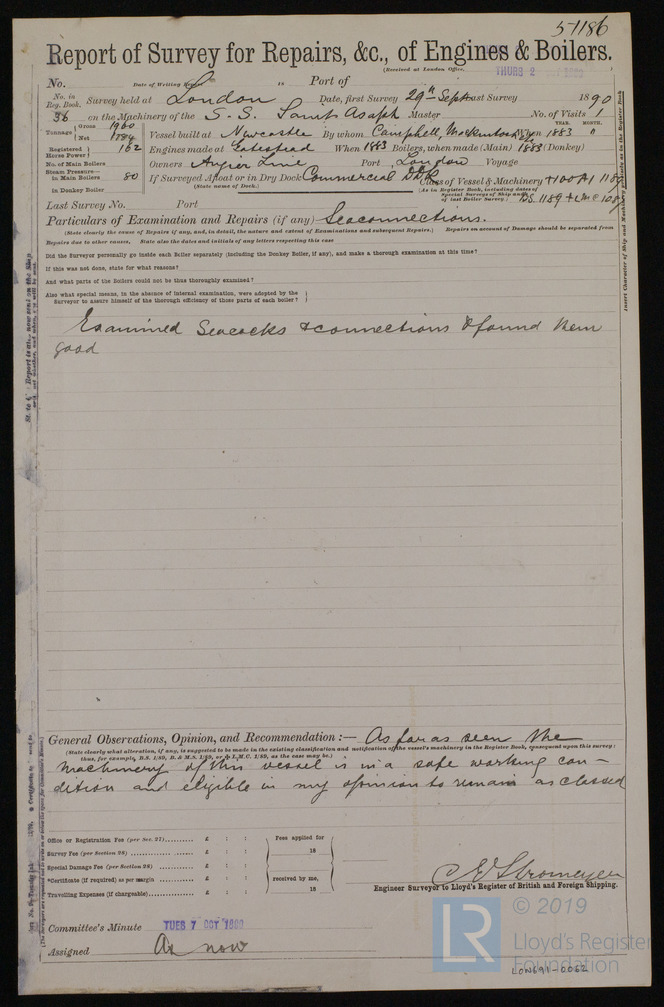 51186
Report of Survey for Repairs, &c., of Engines & Boilers.
(Received at London Office,
THURS 2
No. Date of Writing Report 18 Port of
No. in Reg. Book. Survey held at London Date, first Survey 29th Sept Last Survey 1890
36 on the Machinery of the S. S. Saint Asaph Master No. of Visits 1
Tonnage Gross 1960 Net Vessel built at Newcastle By whom Campbell, Mackintosh When 1883 YEAR. MONTH. 11
Registered Horse Power 162 Engines made at Gateshead When 1883 Boilers, when made (Main) 1883 (Donkey)
No. of Main Boilers Owners Angier Line Port London Voyage
Steam Pressure— In Main Boilers 80 If Surveyed Afloat or in Dry Dock Commercial Dk Class of Vessel & Machinery +100 A1
In Donkey Boiler (State name of Dock.) (As in Register Book, including dates of Special Surveys of Ship and of last Boiler Survey)
Last Survey No. Port
Particulars of Examination and Repairs (if any) Seaconnections.
(State clearly the cause of Repairs if any, and, in detail, the nature and extent of Examinations and subsequent Repairs.) Repairs on account of Damage should be separated from
Repairs due to other causes, State also the dates and initials of any letters respecting this case
Did the Surveyor personally go inside each Boiler separately (including the Donkey Boiler, if any), and make a thorough examination at this time?
If this was not done, state for what reasons?
And what parts of the Boilers could not be thus thoroughly examined?
Also what special means, in the absence of internal examination, were adopted by the
Surveyor to assure himself of the thorough efficiency of those parts of each boiler?
Examined Seacocks & connections & found them
good
General Observations, Opinion, and Recommendation:— As far as seen the
(State clearly what alteration, if any, is suggested to be made in the existing classification and notification of the vessel's machinery in the Register Book, consequent upon this survey:
thus, for example, B.S. 1/89, B. & M.S. 1/89, or L.M.C. 1/89, as the case may be.)
machinery of this vessel is in a safe working con-
dition and eligible in my opinion to remain as classed
Office or Registration Fee (per Sec. 27) £ : : Fees applied for
Survey Fee (per Section 28) £ : : 18
Special Damage Fee (per Section 28) £ : :
*Certificate (if required) as per margin £ : : received by me,
Travelling Expenses (if chargeable) £ : : 18
C E Stromeyer
Engineer Surveyor to Lloyd's Register of British and Foreign Shipping.
Committee's Minute TUES 7 OCT 1890
Assigned As now
LR
© 2019
Lloyd's Register
Foundation
LON691-0062